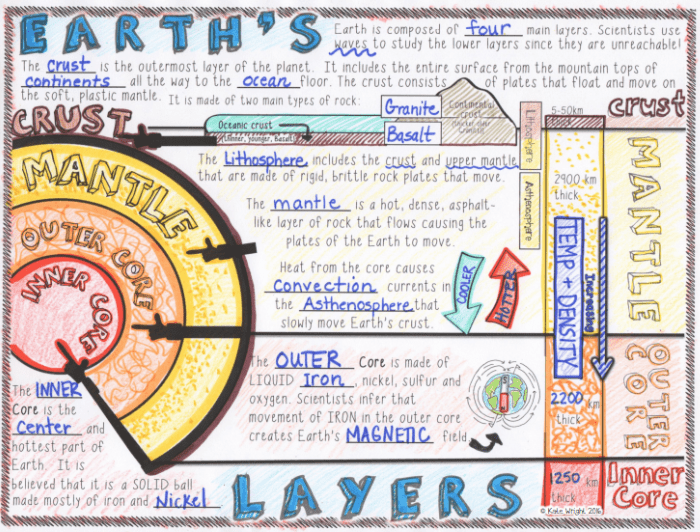 EARTH'S
Earth is composed of four main layers. Scientists use
waves to study the lower layers since they are unreachable!
The Crust is the outermost layer of the planet. It includes the entire surface from the mountain tops of
continents all the way to the ocean floor. The crust consists of plates that float and move on
the soft, plastic mantle. It is made of two main types of rock:
CRUST
Oceanic crust
(thinner, younger, Basalt)
Granite
Basalt
Continental
crust
Lithosphere
Asthenosphere
5-50km
thick
crust
The Lithosphere includes the crust and upper mantle
that are made of rigid, brittle rock plates that move.
MANTLE
The mantle is a hot, dense, asphalt-
like layer of rock that flows causing the
plates of the Earth to move.
2900 km
thick
MANTLE
OUTER CORE
INNER CORE
Heat from the core causes
Convection currents in
the Asthenosphere that
slowly move Earth's crust.
COOLER
HOTTER
TEMP + DENSITY
Increasing
The OUTER Core is made of
LIQUID Iron, nickel, sulfur and
oxygen. Scientists infer that
movement of IRON in the outer core
creates Earth's MAGNETIC field
2200 km
thick
OUTER CORE
The INNER
Core is the
Center and
hottest part of
Earth. It is
believed that it is a SOLID ball
made mostly of iron and Nickel
LAYERS
1250 km
thick
Inner
Core
© Kate Wright 2016